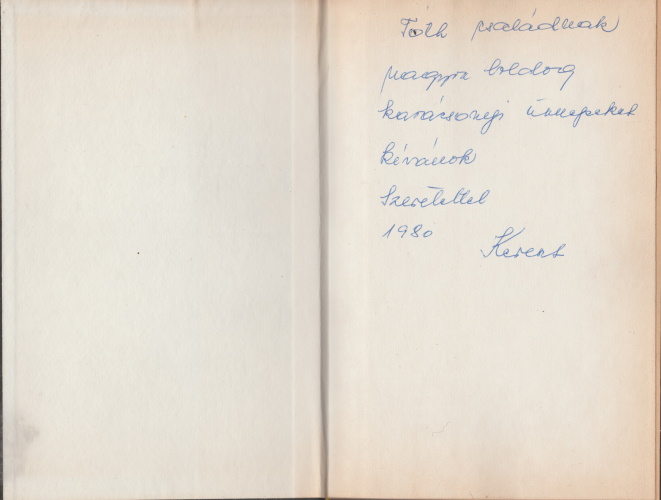 Tóth családnak
nagyon boldog
karácsonyi ünnepeket
kívánok
Szeretettel
1980